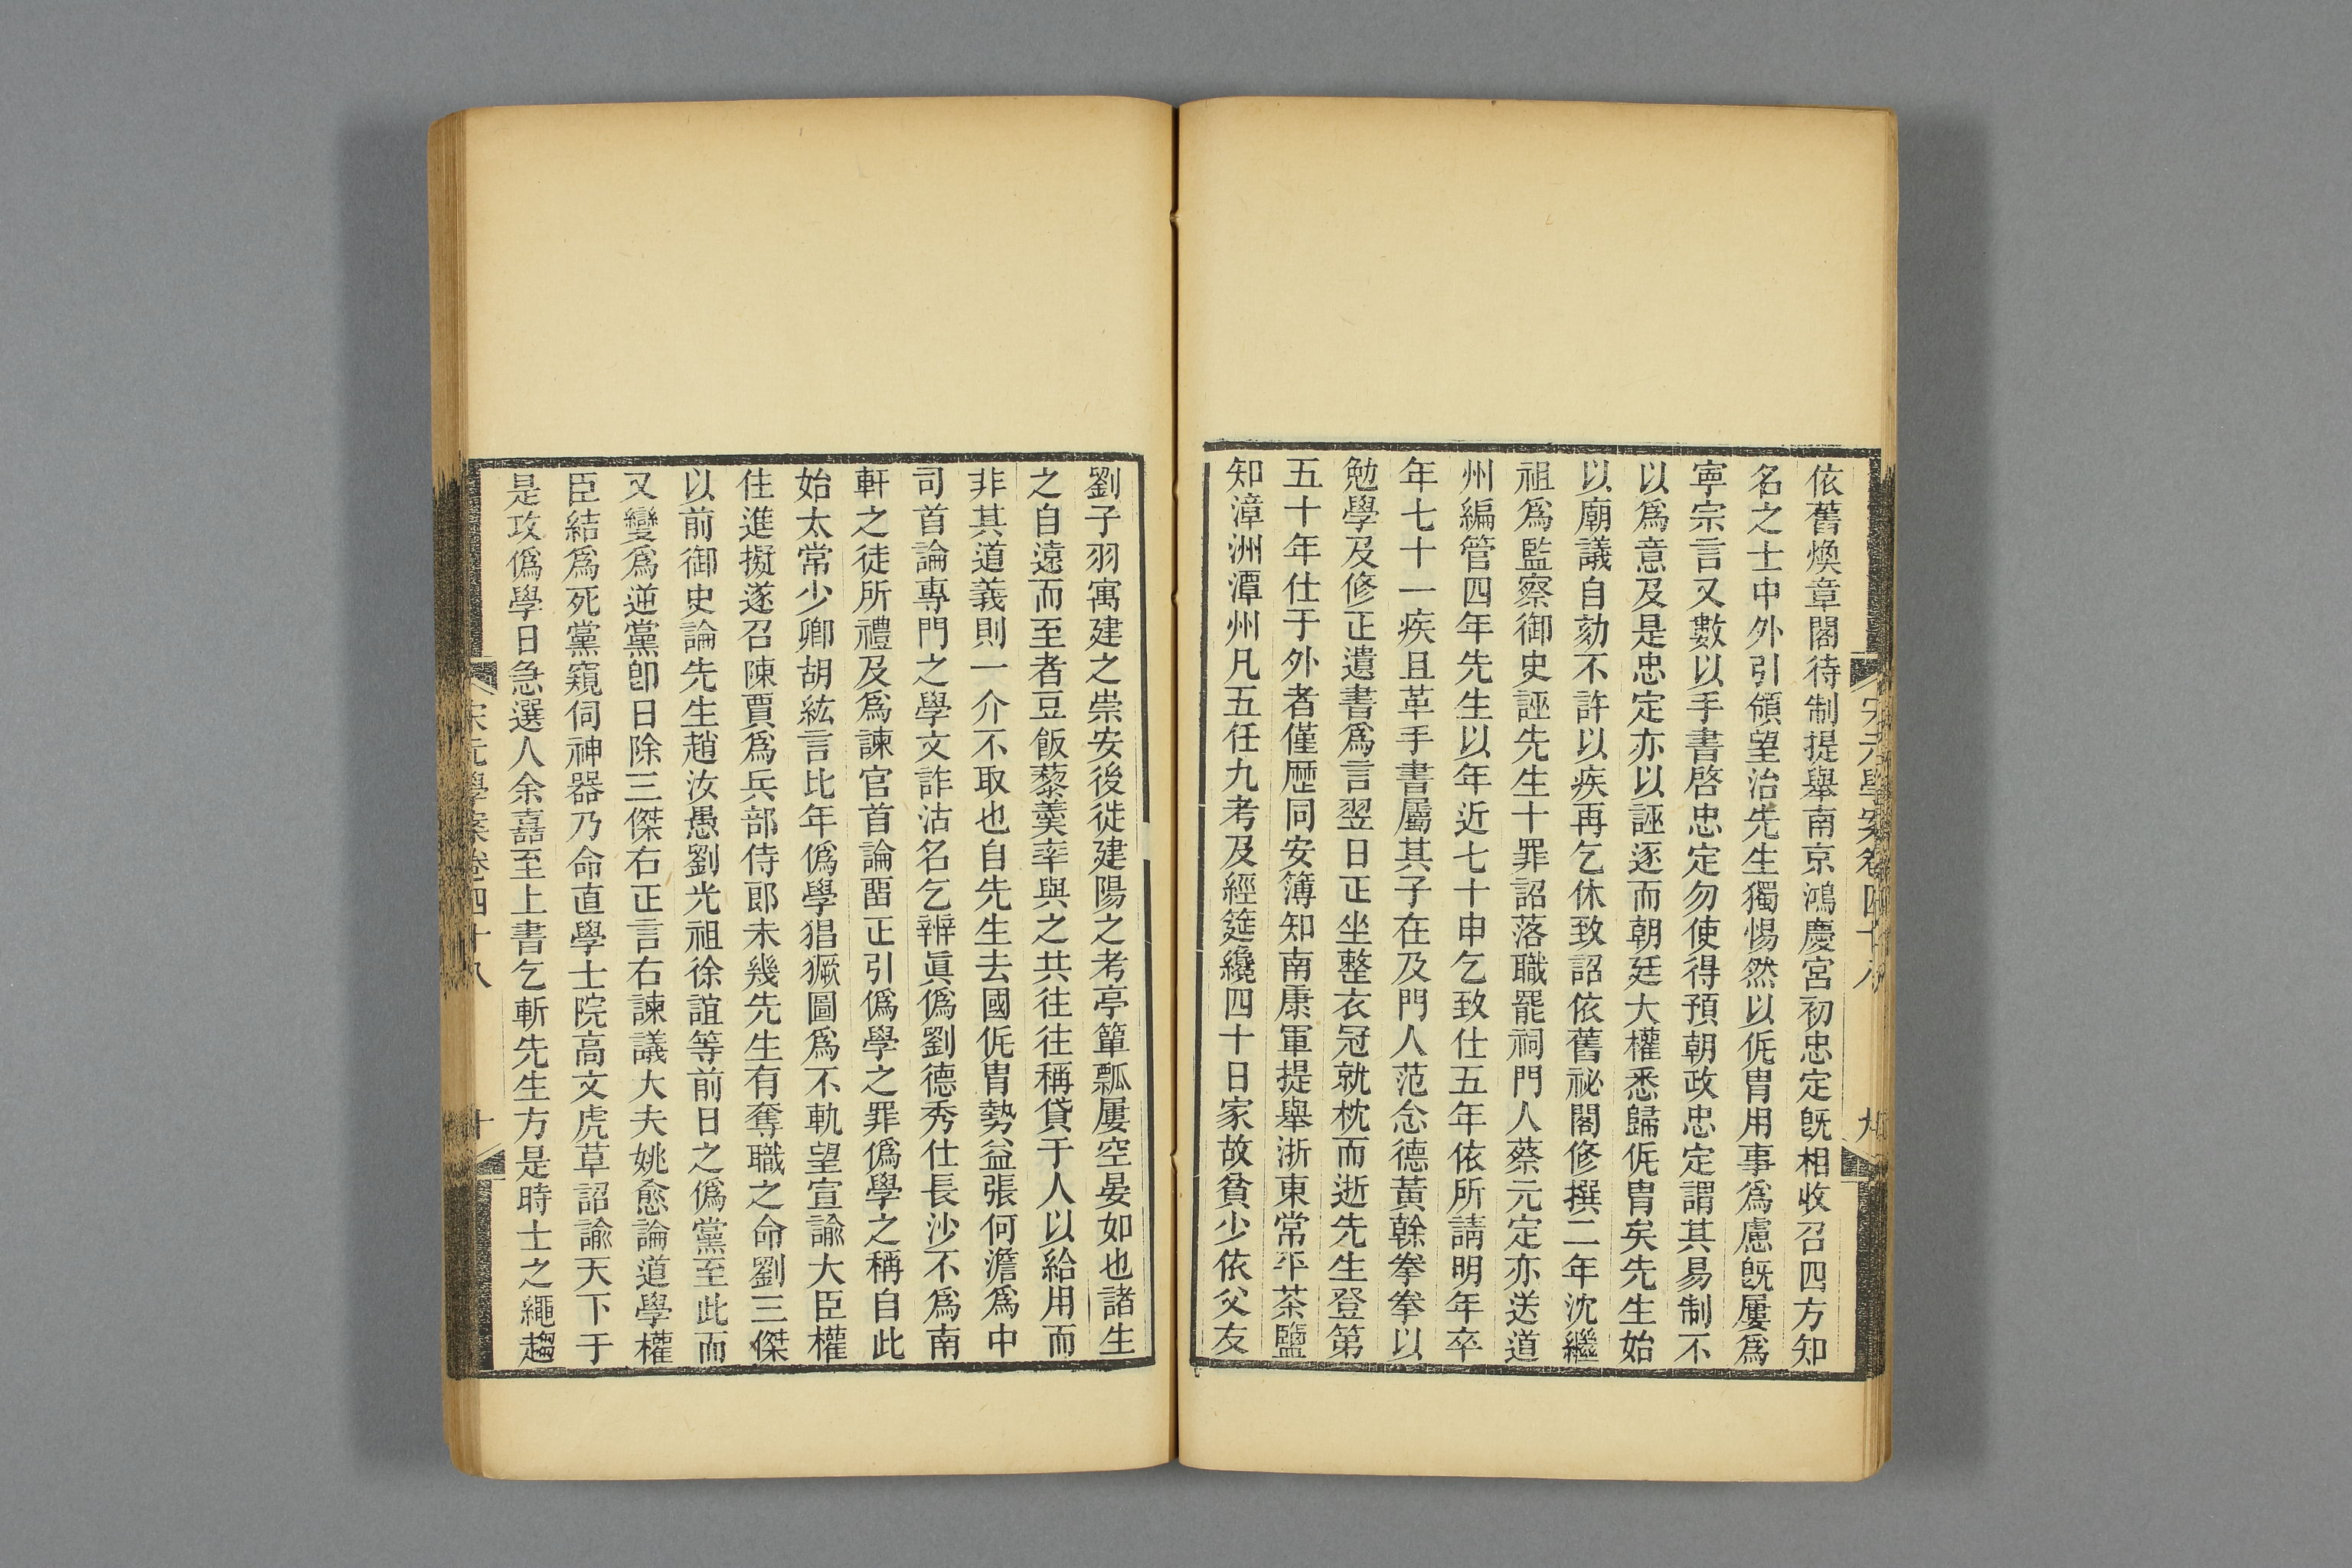 宋元學案卷四十八
九
依舊煥章閣待制提舉南京鴻慶宮初忠定既相收召四方知
名之士中外引領望治先生獨惕然以侂胄用事爲慮既屢爲
寧宗言又數以手書啓忠定勿使得預朝政忠定謂其易制不
以爲意及是忠定亦以誣逐而朝廷大權悉歸侂胄矣先生始
以廟議自劾不許以疾再乞休致詔依舊祕閣修撰二年沈繼
祖爲監察御史誣先生十罪詔落職罷祠門人蔡元定亦送道
州編管四年先生以年近七十申乞致仕五年依所請明年卒
年七十一疾且革手書屬其子在及門人范念德黃榦拳拳以
勉學及修正遺書爲言翌日正坐整衣冠就枕而逝先生登第
五十年仕于外者僅歷同安簿知南康軍提舉浙東常平茶鹽
知漳洲潭州凡五任九考及經筵纔四十日家故貧少依父友
劉子羽寓建之崇安後徙建陽之考亭簞瓢屢空晏如也諸生
之自遠而至者豆飯藜羹率與之共往往稱貸于人以給用而
非其道義則一介不取也自先生去國侂胄勢益張何澹爲中
司首論專門之學文詐沽名乞辨眞僞劉德秀仕長沙不爲南
軒之徒所禮及爲諫官首論畱正引僞學之罪僞學之稱自此
始太常少卿胡紘言比年僞學猖獗圖爲不軌望宣諭大臣權
住進擬遂召陳賈爲兵部侍郎未幾先生有奪職之命劉三傑
以前御史論先生趙汝愚劉光祖徐誼等前日之僞黨至此而
又變爲逆黨卽日除三傑右正言右諫議大夫姚愈論道學權
臣結爲死黨窺伺神器乃命直學士院高文虎草詔諭天下于
是攻僞學日急選人余嚞至上書乞斬先生方是時士之繩趨
宋元學案卷四十八
十